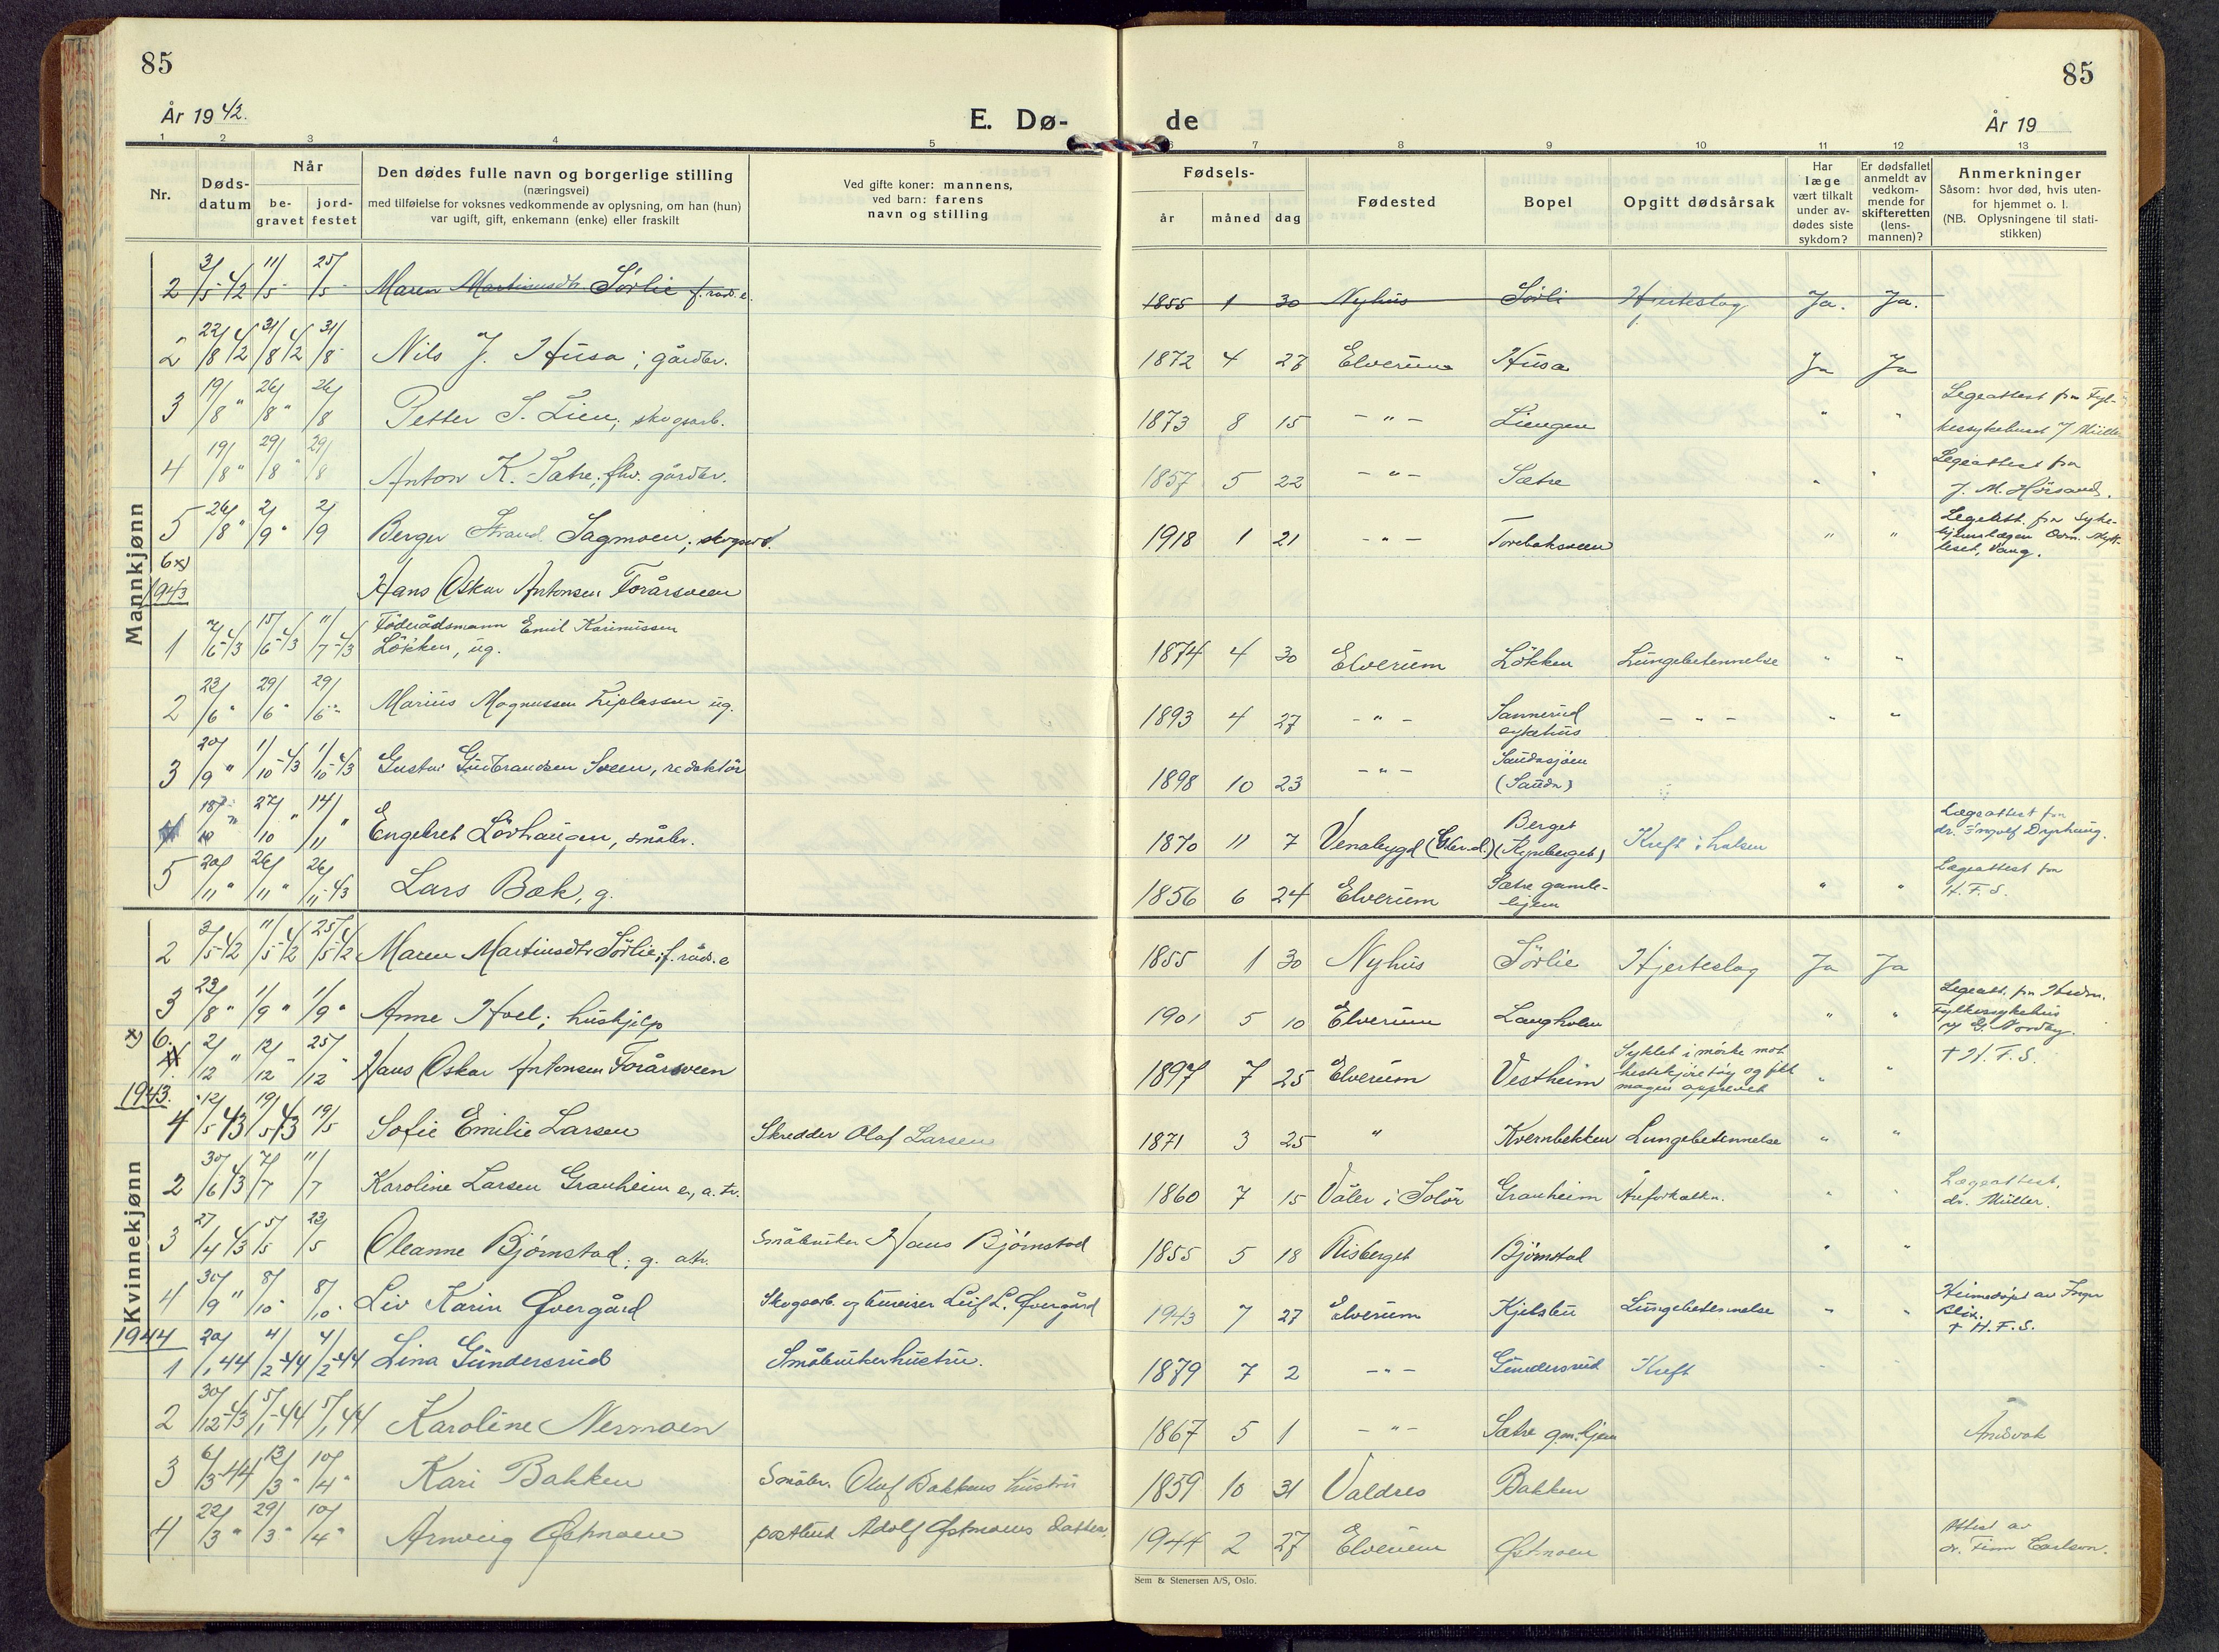 85
85
År 1942.
E. Dø-
de
År 19
1 2 3 4 5 6 7 8 9 10 11 12 13
Nr.
Døds-
datum
Når
be-
gravet
jord-
festet
Den dødes fulle navn og borgerlige stilling
(næringsvei)
med tilføielse for voksnes vedkommende av oplysning, om han (hun)
var ugift, gift, enkemann (enke) eller fraskilt
Ved gifte koner: mannens,
ved barn: farens
navn og stilling
Fødsels-
år måned dag
Fødested
Bopel
Opgitt dødsårsak
Har
læge
vært tilkalt
under av-
dødes siste
sykdom?
Er dødsfallet
anmeldt av
vedkom-
mende for
skifteretten
(lens-
mannen)?
Anmerkninger
Såsom: hvor død, hvis uten-
for hjemmet o. l.
(NB. Oplysningene til stati-
stikken)
Mannkjønn
2 3/5-42 11/5- 25/5- Maren Martinusdtr Sørlie f.råd.e. 1855 1 30 Nyhus Sørli Hjerteslag Ja. Ja.
2 22/8 42 31/8 42 31/8- Nils J. Husa; gårdbr. 1872 4 27 Elverum Husa Ja Ja
3 19/8 " 26/8 " 26/8 Petter S. Lien; skogsarb. 1873 8 15 - " - Liengen " " Legeattest fra Fyl-
kessykehuset / Müller
4 19/8 " 29/8 " 29/8 Anton K. Sætre; fhv. gårdbr. 1857 5 22 - " - Sætre " " Legeattest fra
J. M. Hörsand.
5 26/8 " 2/9 " 2/9 Berger Strand Sagmoen; skogsarb. 1918 1 21 - " - Torebaksveen " " Legeatt. fra Syke-
Vang.
6 x)
Hans Oskar Antonsen Forårsveen
1943
1 7/6-43 15/6-43 11/7-43 Föderådsmann Emil Karinussen
Lökken, ug. 1874 4 30 Elverum Lökken Lungebetennelse " "
2 23/6 " 29/6 " 29/6 " Marius Magnussen Liplassen ug. 1893 4 27 - " - Sannerud
sykehus - " - " "
3 20/9 " 1/10-43 1/10-43 Gustav Gudbrandsen Sveen, redaktör 1898 10 23 - " - Sandasjöen
(Sandn)
18/10 " 27/10 " 14/11 " Engebret Lövhaugen, småbr. 1870 11 7 Venabygd (Gbr.d.) Berget
(Kynberget) Kreft i halsen Lægeattest fra
dr. Ingvolf Dyrhaug.
5 20/11 " 26/11 " 26/11-43 Lars Bæk, g. 1856 6 24 Elverum Sætre gamle-
hjem " " Lægeattest fra
H. F. S.
Kvinnekjønn
2 3/5-42 11/5-42 25/5-42 Maren Martinusdtr Sörlie; f.råd.e 1855 1 30 Nyhus Sörlie Hjerteslag Ja Ja
3 23/8 " 1/9 " 1/9 " Anne Hoel; hushjelp 1901 5 10 Elverum Langholm " " Legeatt. fra Hedm.
Fylkessykehus
v/ G. Nordby.
x) 6. 2/12 " 12/12 " 25/12 " Hans Oskar Antonsen Forårsveen 1897 7 25 Elverum Vestheim Syklet i mörke mot
hestekjöretöy og fikk
magen opprevet " " † H. F. S.
1943.
4 12/5 43 19/5 43 19/5 Sofie Emilie Larsen Skredder Olaf Larsen 1871 3 25 " Kvernbekken Lungebetennelse " "
2 30/6 43 7/7 11/7 Karoline Larsen Granheim e., a.tr. 1860 7 15 Våler i Solör Granheim Åreforkalkn. " " Lægeattest,
dr. Müller.
3 27/4 43 5/5 23/5 Oleanne Björnstad; g. altr. Småbruker Hans Björnstad 1855 5 18 Risberget Björnstad " "
4 30/9 " 8/10 - 8/10 - Liv Karin Øvergård Skogsarb. og bureiser Leif L. Øvergård 1943 7 27 Elverum Kjelsbu Lungebetennelse " " Heimedöpt av Inger
Blix.
† H. F. S.
1944
1 20/1 44 4/2-44 4/2-44 Lina Gundersrud Småbrukerhustru. 1879 7 2 - " - Gundersrud Kreft
2 30/12-43 5/1-44 5/1 44 Karoline Nermoen 1867 5 1 - " - Sætre gm.hjem Åndsvak
3 6/3-44 13/3 " 10/4 " Kari Bakken Småbr. Olaf Bakkens hustru 1859 10 31 Valdres Bakken
4 22/3 " 29/3 " 10/4 " Arnveig Østmoen postbud Adolf Østmoens datter. 1944 2 27 Elverum Østmoen Attest av
dr. Finn Carlson.
Sem & Stenersen A/S, Oslo.